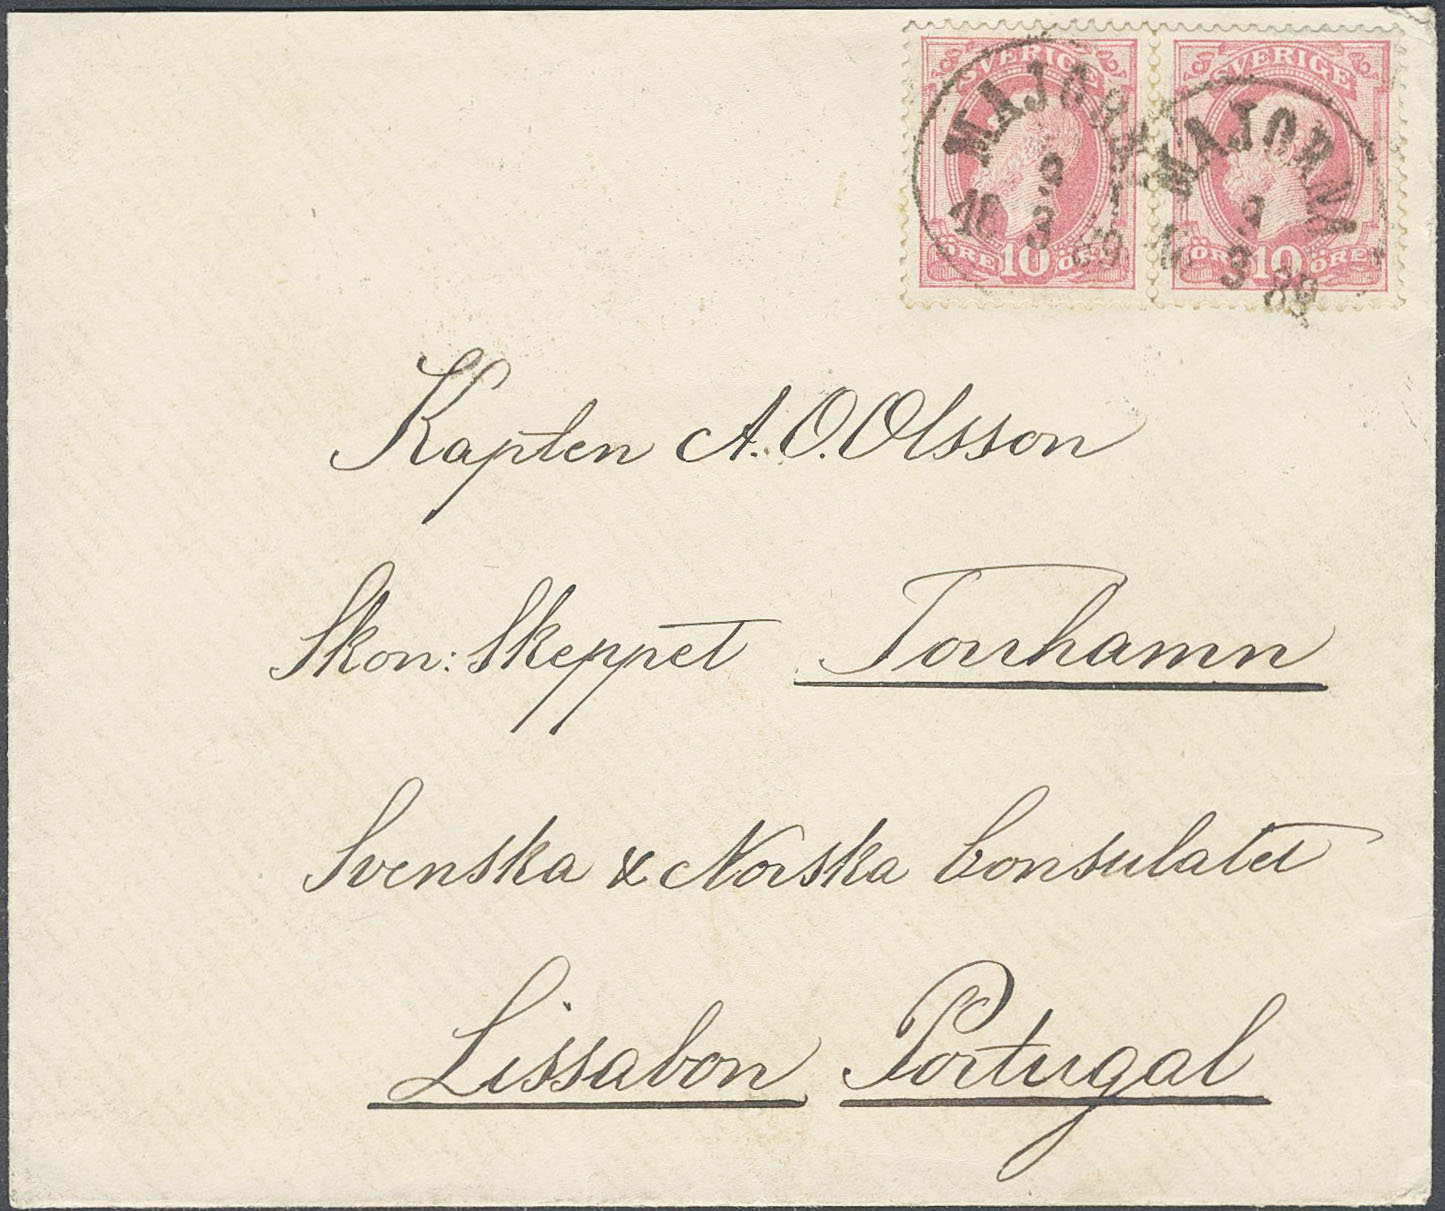 SVERIGE SVERIGE
MAJORNA MAJORNA
9 9
3 3
89 89
ÖRE 10 ÖRE ÖRE 10 ÖRE
Kapten A. O. Olsson
Skon: Skeppet Torrhamn
Svenska & Norska Consulatet
Lissabon Portugal